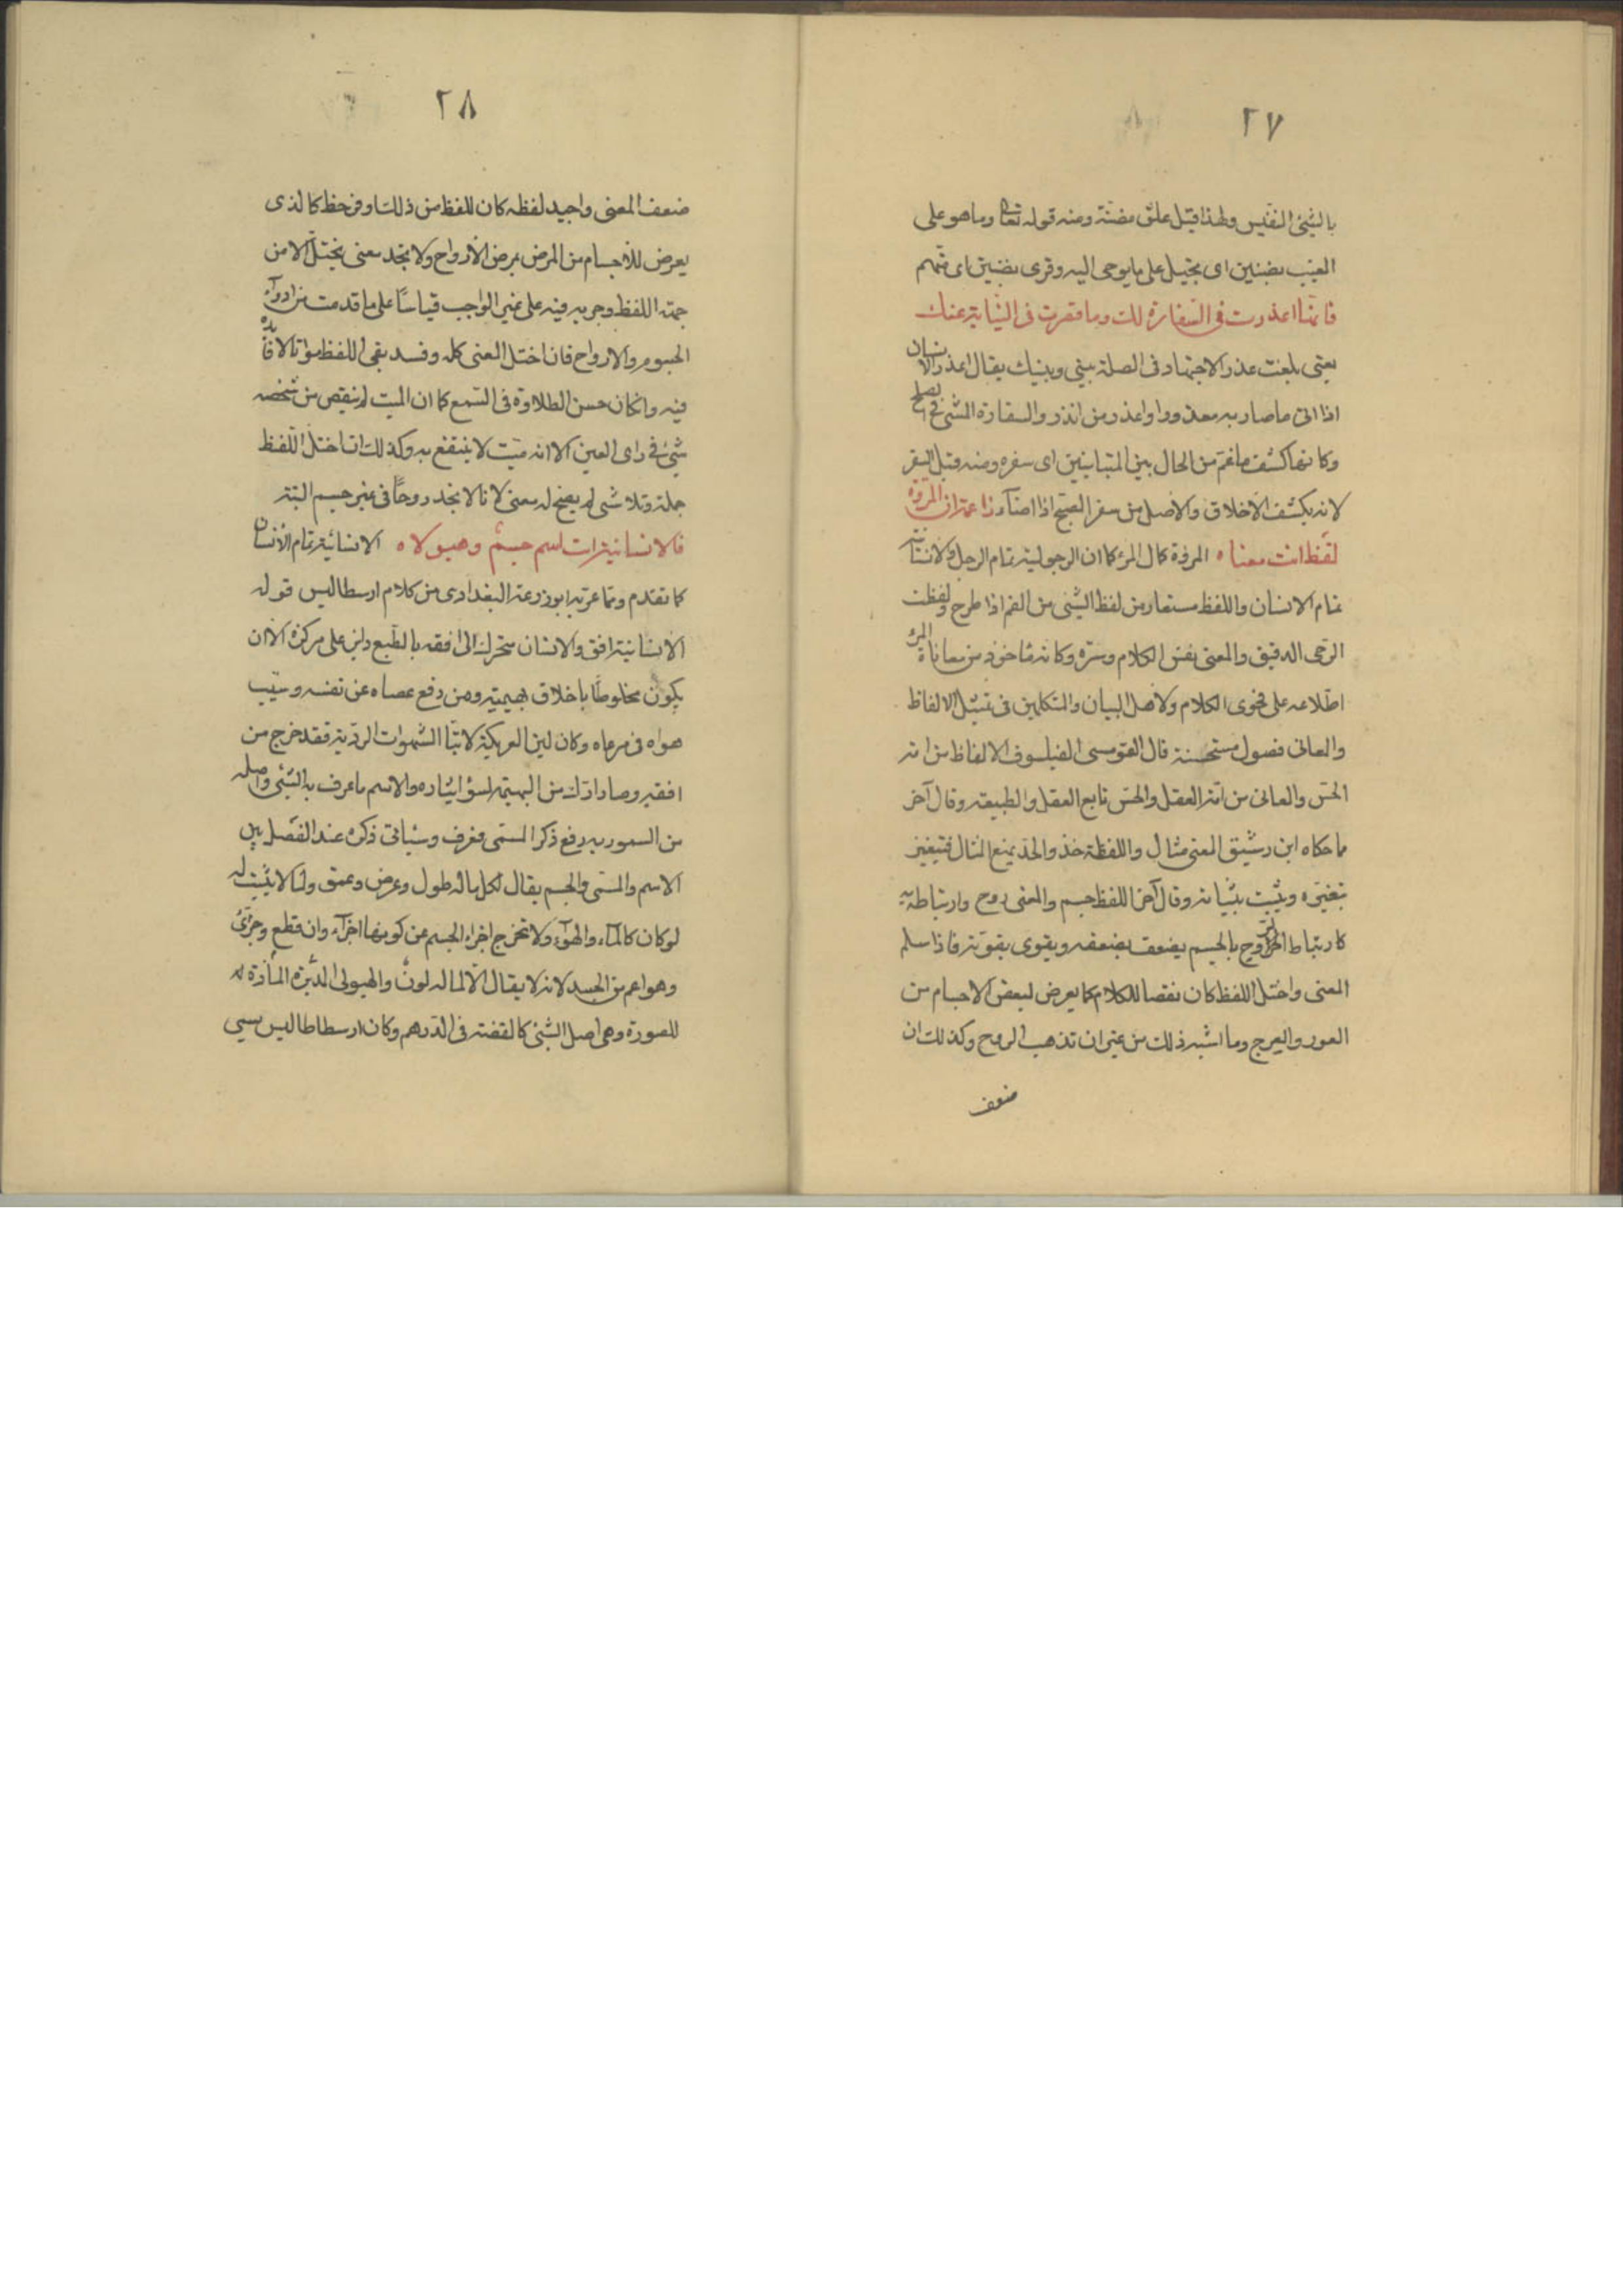 ٢٧
بالشئ النفيس ولهذا قيل علق مضنة ومنه قوله تعالى وماهو على
الغيب بضنين اى بخيل على مايوحى اليه وقرئ بظنين اى متهم
فانما اعذرت فى السفارة لك وما قصرت فى النيابة عنك
يعنى بلغت عذر الاجتهاد فى الصلة بينى وبينك يقال اعذر الانسان
اذا اتى ماصار به معذورا واعذر من انذر والسفارة المشى فى الصلح
وكانها كشف ما غم من الحال بين المتباينين اى سفره ومنه قيل السفر
لانه يكشف الاخلاق والاصل من سفر الصبح اذا اضاء زاعمة ان المروة
لفظ انت معناه المروة كمال المرء كما ان الرجولية تمام الرجل والانسانية
تمام الانسان واللفظ مستعار من لفظ الشئ من الفم اذا طرح ولفظت
الرحى الدقيق والمعنى نفس الكلام وسره وكانه مأخوذ من معاناة المرء
اطلاعه على فحوى الكلام ولاهل البيان والمتكلمين فى تمثيل الالفاظ
والمعانى فصول مستحسنة قال القومسى الفيلسوف الالفاظ من امة
الحس والمعانى من امة العقل والحس تابع العقل والطبيعة وقال آخر
ما حكاه ابن رشيق المعنى مثال واللفظة حذو والحذو يتبع المثال فيتغير
بتغيره ويثبت بثباته وقال آخر اللفظ جسم والمعنى روح وارتباطه به
كارتباط الروح بالجسم يضعف بضعفه ويقوى بقوته فاذا سلم
المعنى واختل اللفظ كان نقصا للكلام كما يعرض لبعض الاجسام من
العور والعرج وما اشبه ذلك من غير ان تذهب الروح وكذلك ان
ضعف
٢٨
ضعف المعنى واجيد لفظه كان للفظ من ذلك اوفر حظ كالذى
يعرض للاجسام من المرض بمرض الارواح ولا تجد معنى يختل الا من
جهة اللفظ وجريه فيه على غير الواجب قياسًا على ما قدمت من ادواء
الجسوم والارواح فان اختل المعنى كله وفسد بقى اللفظ مواتا لا فائدة
فيه وان كان حسن الطلاوة فى السمع كما ان الميت لم ينقص من شخصه
شئ فى راى العين الا انه ميت لا ينتفع به وكذلك ان اختل اللفظ
جملة وتلاشى لم يصح له معنى لانا لا نجد روحًا فى غير جسم البتة
فالانسانية انت اسم جسمه وهيولاه الانسانية تمام الانسان
كما تقدم ومما عربه ابو زرعة البغدادى من كلام ارسطاليس قوله
الانسانية افق والانسان متحرك الى افقه بالطبع دائر على مركزه الا ان
يكون مخلوطًا باخلاق بهيمية ومن رفع عصاه عن نفسه وسيب
هواه فى مرعاه وكان لين العريكة لاتباع الشهوات الردية فقد خرج من
افقه وصار ارذل من البهيمة لسؤ ايثاره والاسم ما عرف به الشئ واصله
من السمو به رفع ذكر المسمى فعرف وسيأتى ذكره عند الفصل بين
الاسم والمسمى والجسم يقال لكل ما له طول وعرض وعمق ولما لا يثبت له
لو كان كالماء والهواء ولا تخرج اجزاء الجسم عن كونها اجزاء وان قطع وجزئ
وهو اعم من الجسد لانه لا يقال الا لما له لون والهيولى المادة له
للصورة وهى اصل الشئ كالفضة فى الدرهم وكان ارسطاطاليس يسمى